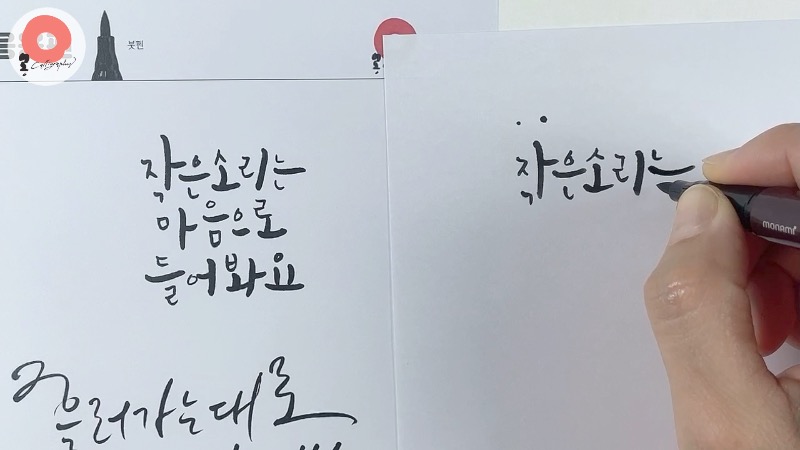 Calligraphy
붓펜
작은소리는
마음으로
들어봐요
흘러가는대로
작은소리는
monami